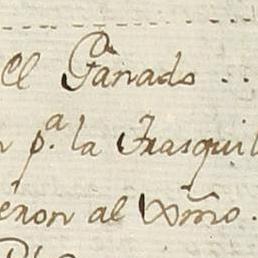 el Ganado ..
n p.ª la Trasquil
eron al Xmo.